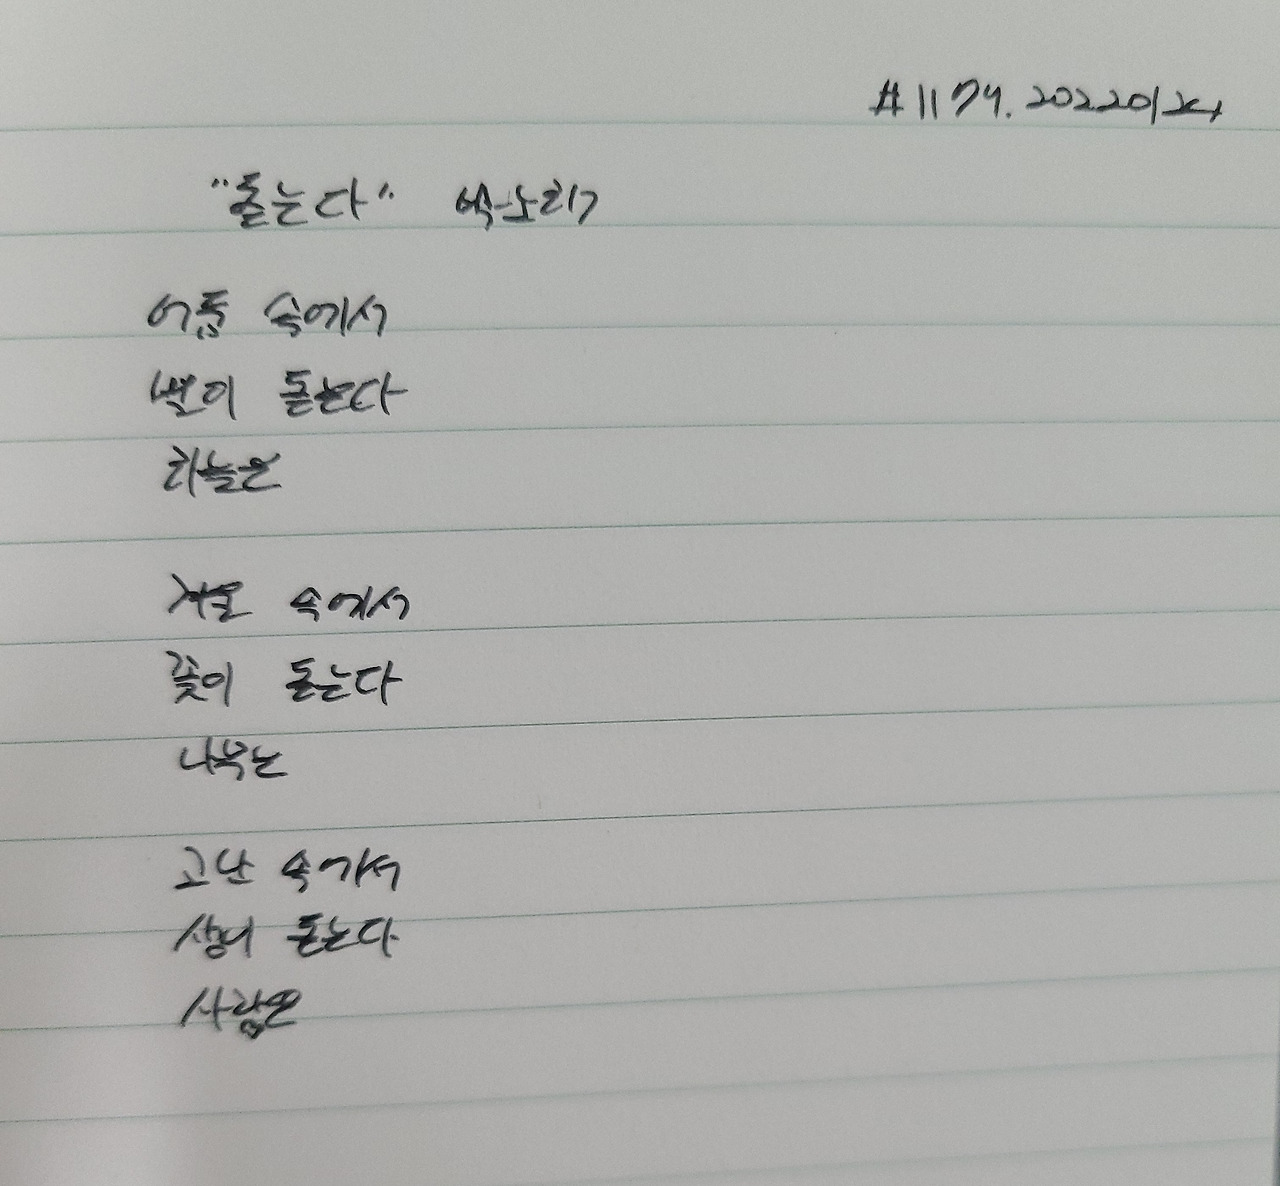 #1174. 20220124
"돋는다" 박노해
어둠 속에서
별이 돋는다
하늘은
겨울 속에서
꽃이 돋는다
나무는
고난 속에서
돋는다
사람은